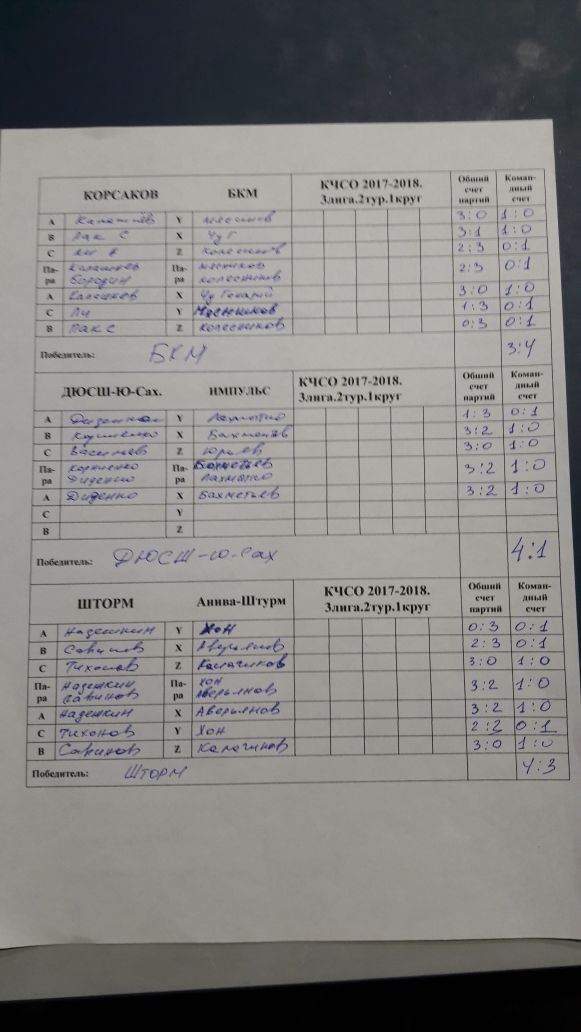 КОРСАКОВ БКМ КЧСО 2017-2018. Общий счет партий Коман-дный счет
3лига.2тур.1круг
A Y 3:0 1:0
B Пак С X Чу Г 3:1 1:0
C Z Колесников 2:3 0:1
Па-ра Калашнев Па-ра 2:3 0:1
Бородин Колесников
A Калашнев X Чу Генрий 3:0 1:0
C Ли Y 1:3 0:1
B Пак С Z Колесников 0:3 0:1
Победитель: БКМ 3:4
ДЮСШ-Ю-Сах. ИМПУЛЬС КЧСО 2017-2018. Общий счет партий Коман-дный счет
3лига.2тур.1круг
A Y 1:3 0:1
B X 3:2 1:0
C Z Юрьев 3:0 1:0
Па-ра Корниенко Па-ра Бахметьев 3:2 1:0
Диденко
A Диденко X Бахметьев 3:2 1:0
C Y
B Z
Победитель: ДЮСШ-Ю-Сах 4:1
ШТОРМ Анива-Штурм КЧСО 2017-2018. Общий счет партий Коман-дный счет
3лига.2тур.1круг
A Надешкин Y Хон 0:3 0:1
B Савинов X Аверьянов 2:3 0:1
C Тихонов Z 3:0 1:0
Па-ра Надешкин Па-ра Хон 3:2 1:0
Савинов Аверьянов
A Надешкин X Аверьянов 3:2 1:0
C Тихонов Y Хон 2:2 0:1
B Савинов Z 3:0 1:0
Победитель: Шторм 4:3